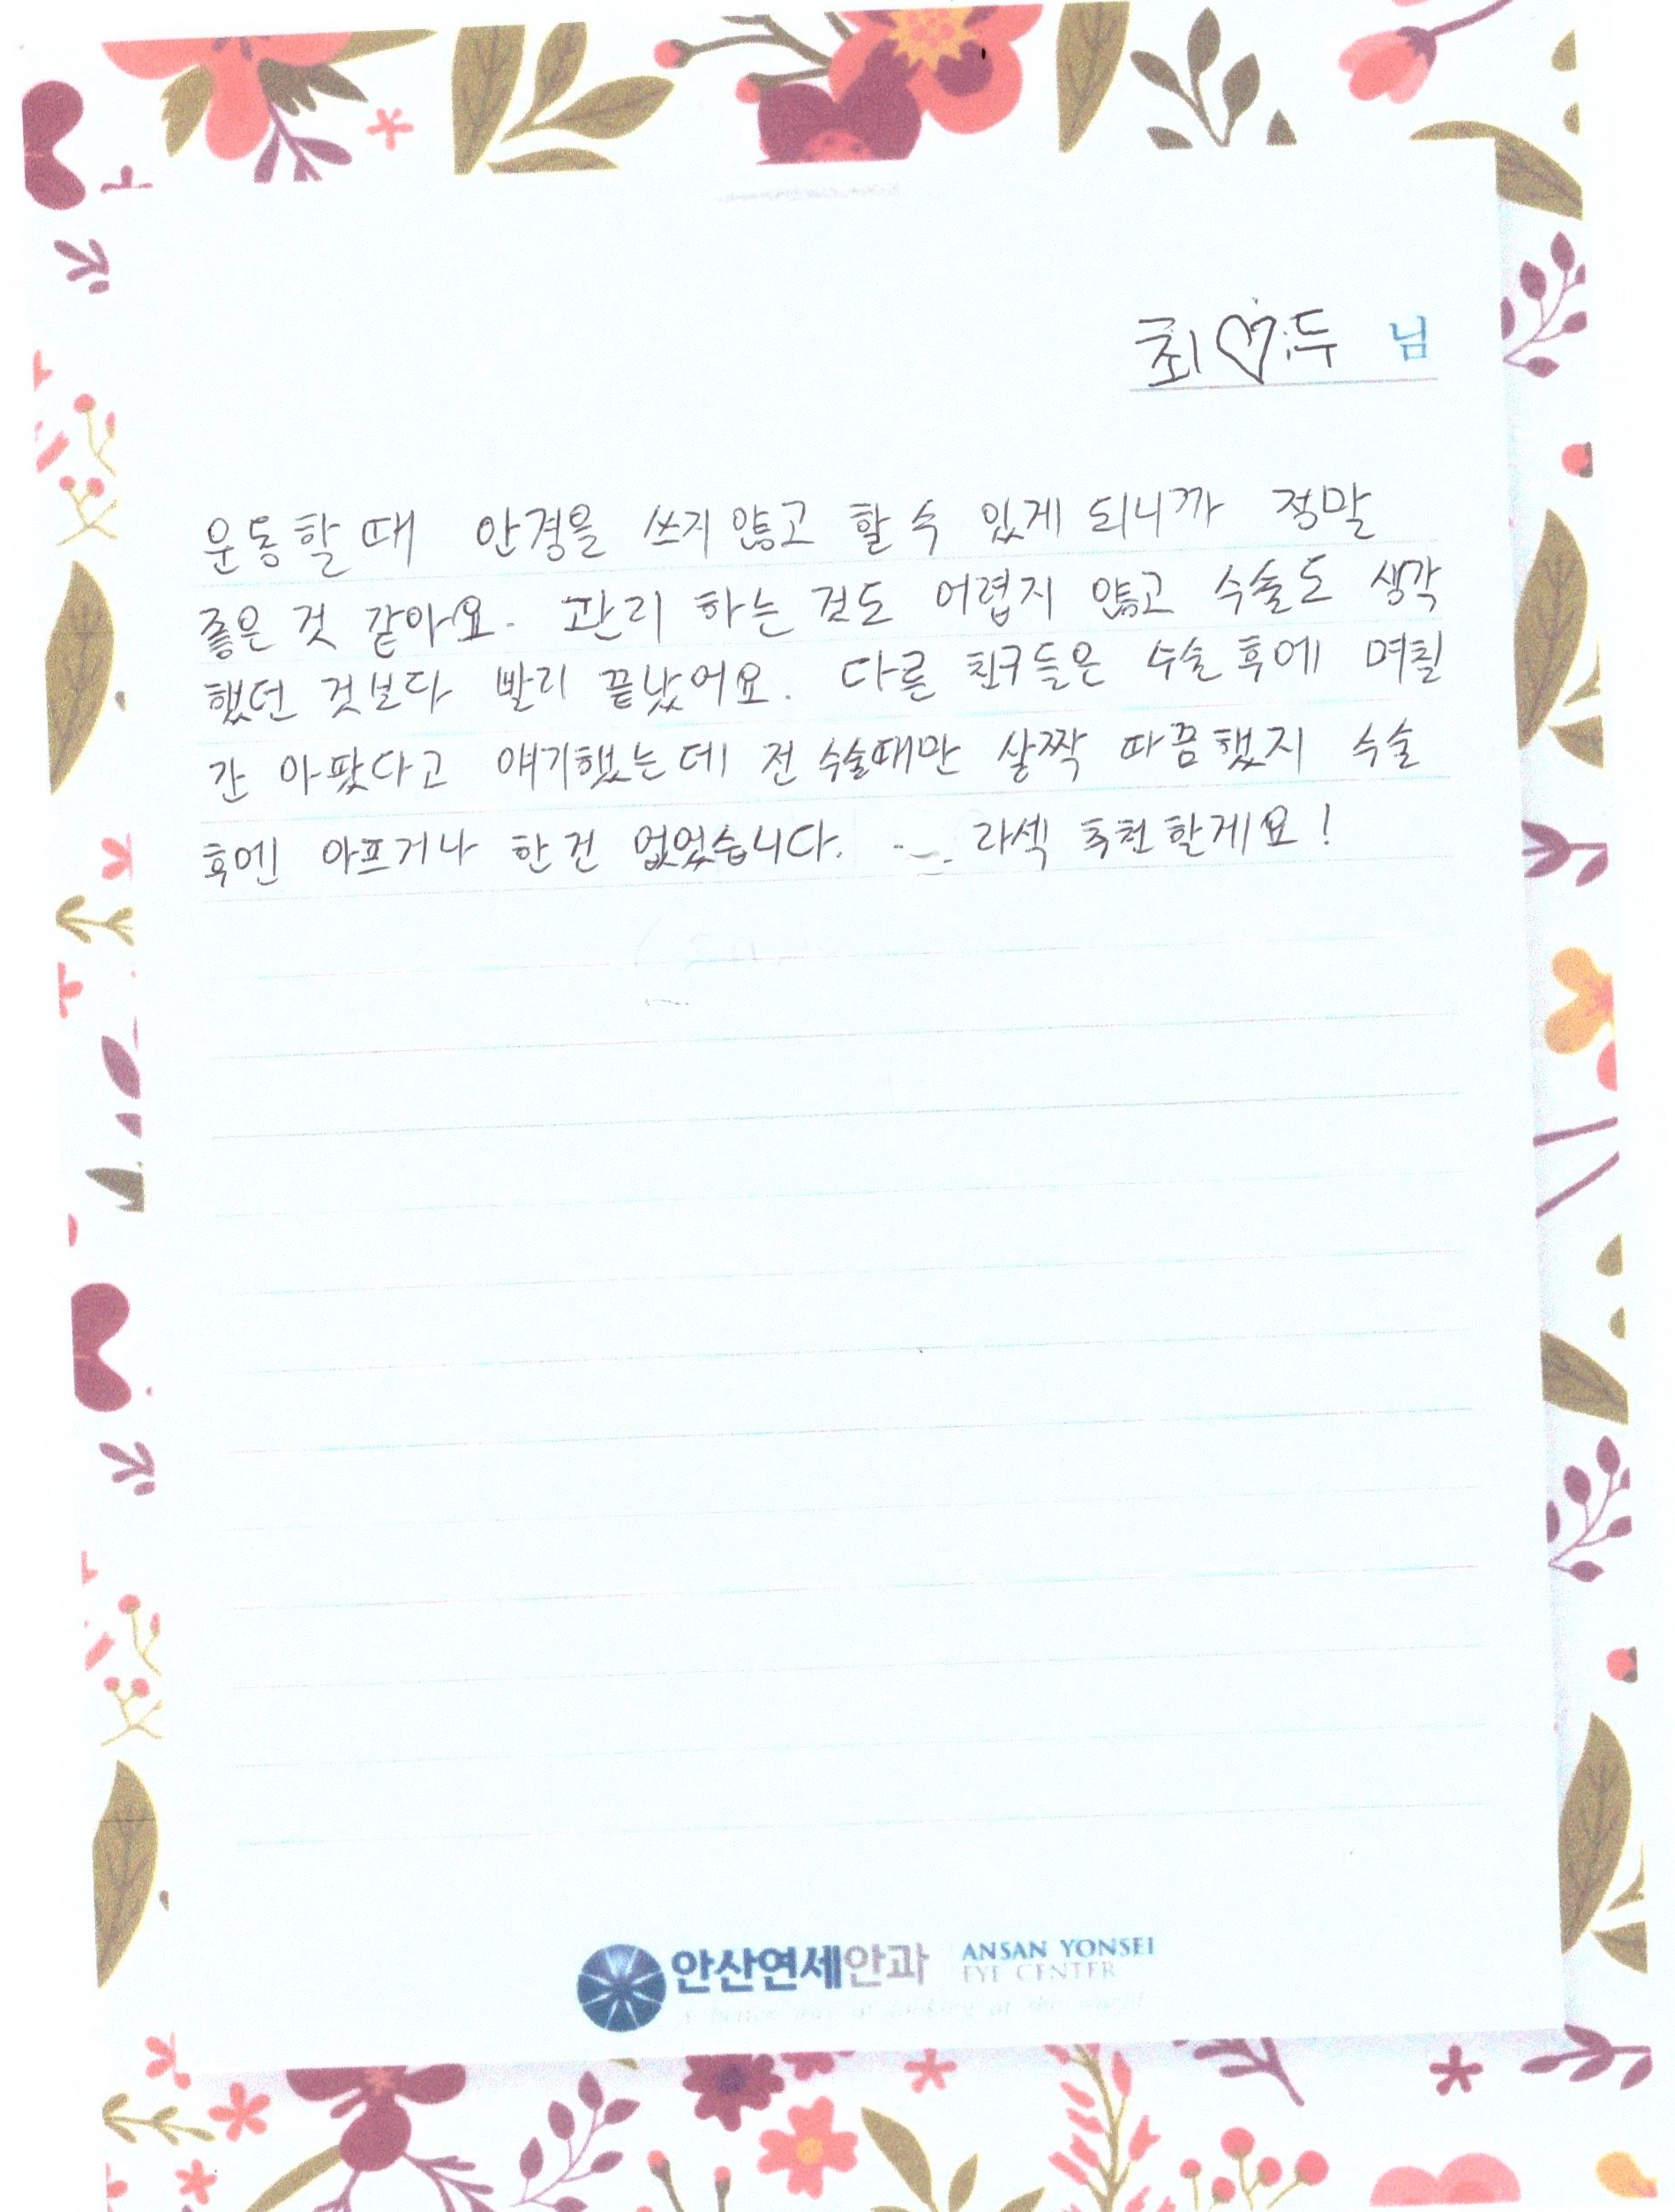 최♡두 님
운동할 때 안경을 쓰지 않고 할 수 있게 되니까 정말
좋은 것 같아요. 관리 하는 것도 어렵지 않고 수술도 생각
했던 것보다 빨리 끝났어요. 다른 친구들은 수술 후에 며칠
간 아팠다고 얘기했는데 전 수술때만 살짝 따끔했지 수술
후엔 아프거나 한 건 없었습니다. 라섹 추천할게요!
안산연세안과 ANSAN YONSEI
EYE CENTER